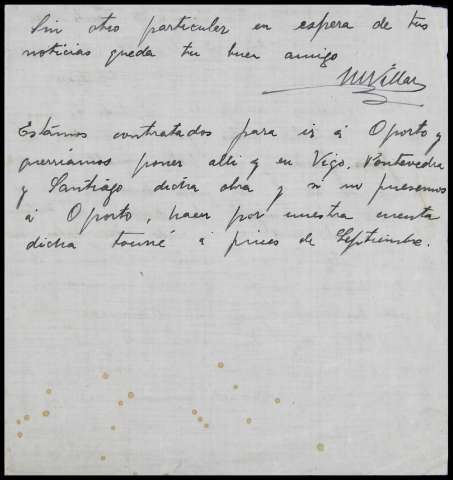 Sin otro particular en espera de tus
noticias queda tu buen amigo
MVillar
Estamos contratados para ir á Oporto y
querriamos poner alli y en Vigo, Pontevedra
y Santiago dicha obra y si no fuesemos
á Oporto, hacer por nuestra cuenta
dicha tourné á fines de Septiembre.